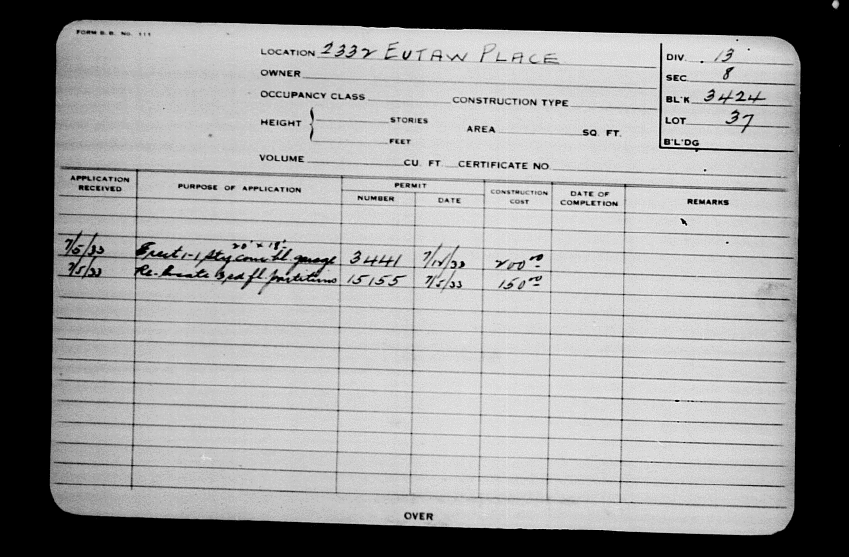 FORM B. B. NO. 111
LOCATION 2332 EUTAW PLACE
OWNER
OCCUPANCY CLASS CONSTRUCTION TYPE
HEIGHT { STORIES
FEET
AREA SQ. FT.
VOLUME CU. FT. CERTIFICATE NO.
DIV. 13
SEC 8
BL'K 3424
LOT 37
B'L'DG
APPLICATION RECEIVED PURPOSE OF APPLICATION PERMIT NUMBER DATE CONSTRUCTION COST DATE OF COMPLETION REMARKS
20' x 18'
7/5/33 Erect 1-1 sty conc. bl. garage 3441 7/12/33 200.00
7/5/33 Re-locate 3rd fl partitions 15155 7/5/33 150.00
OVER